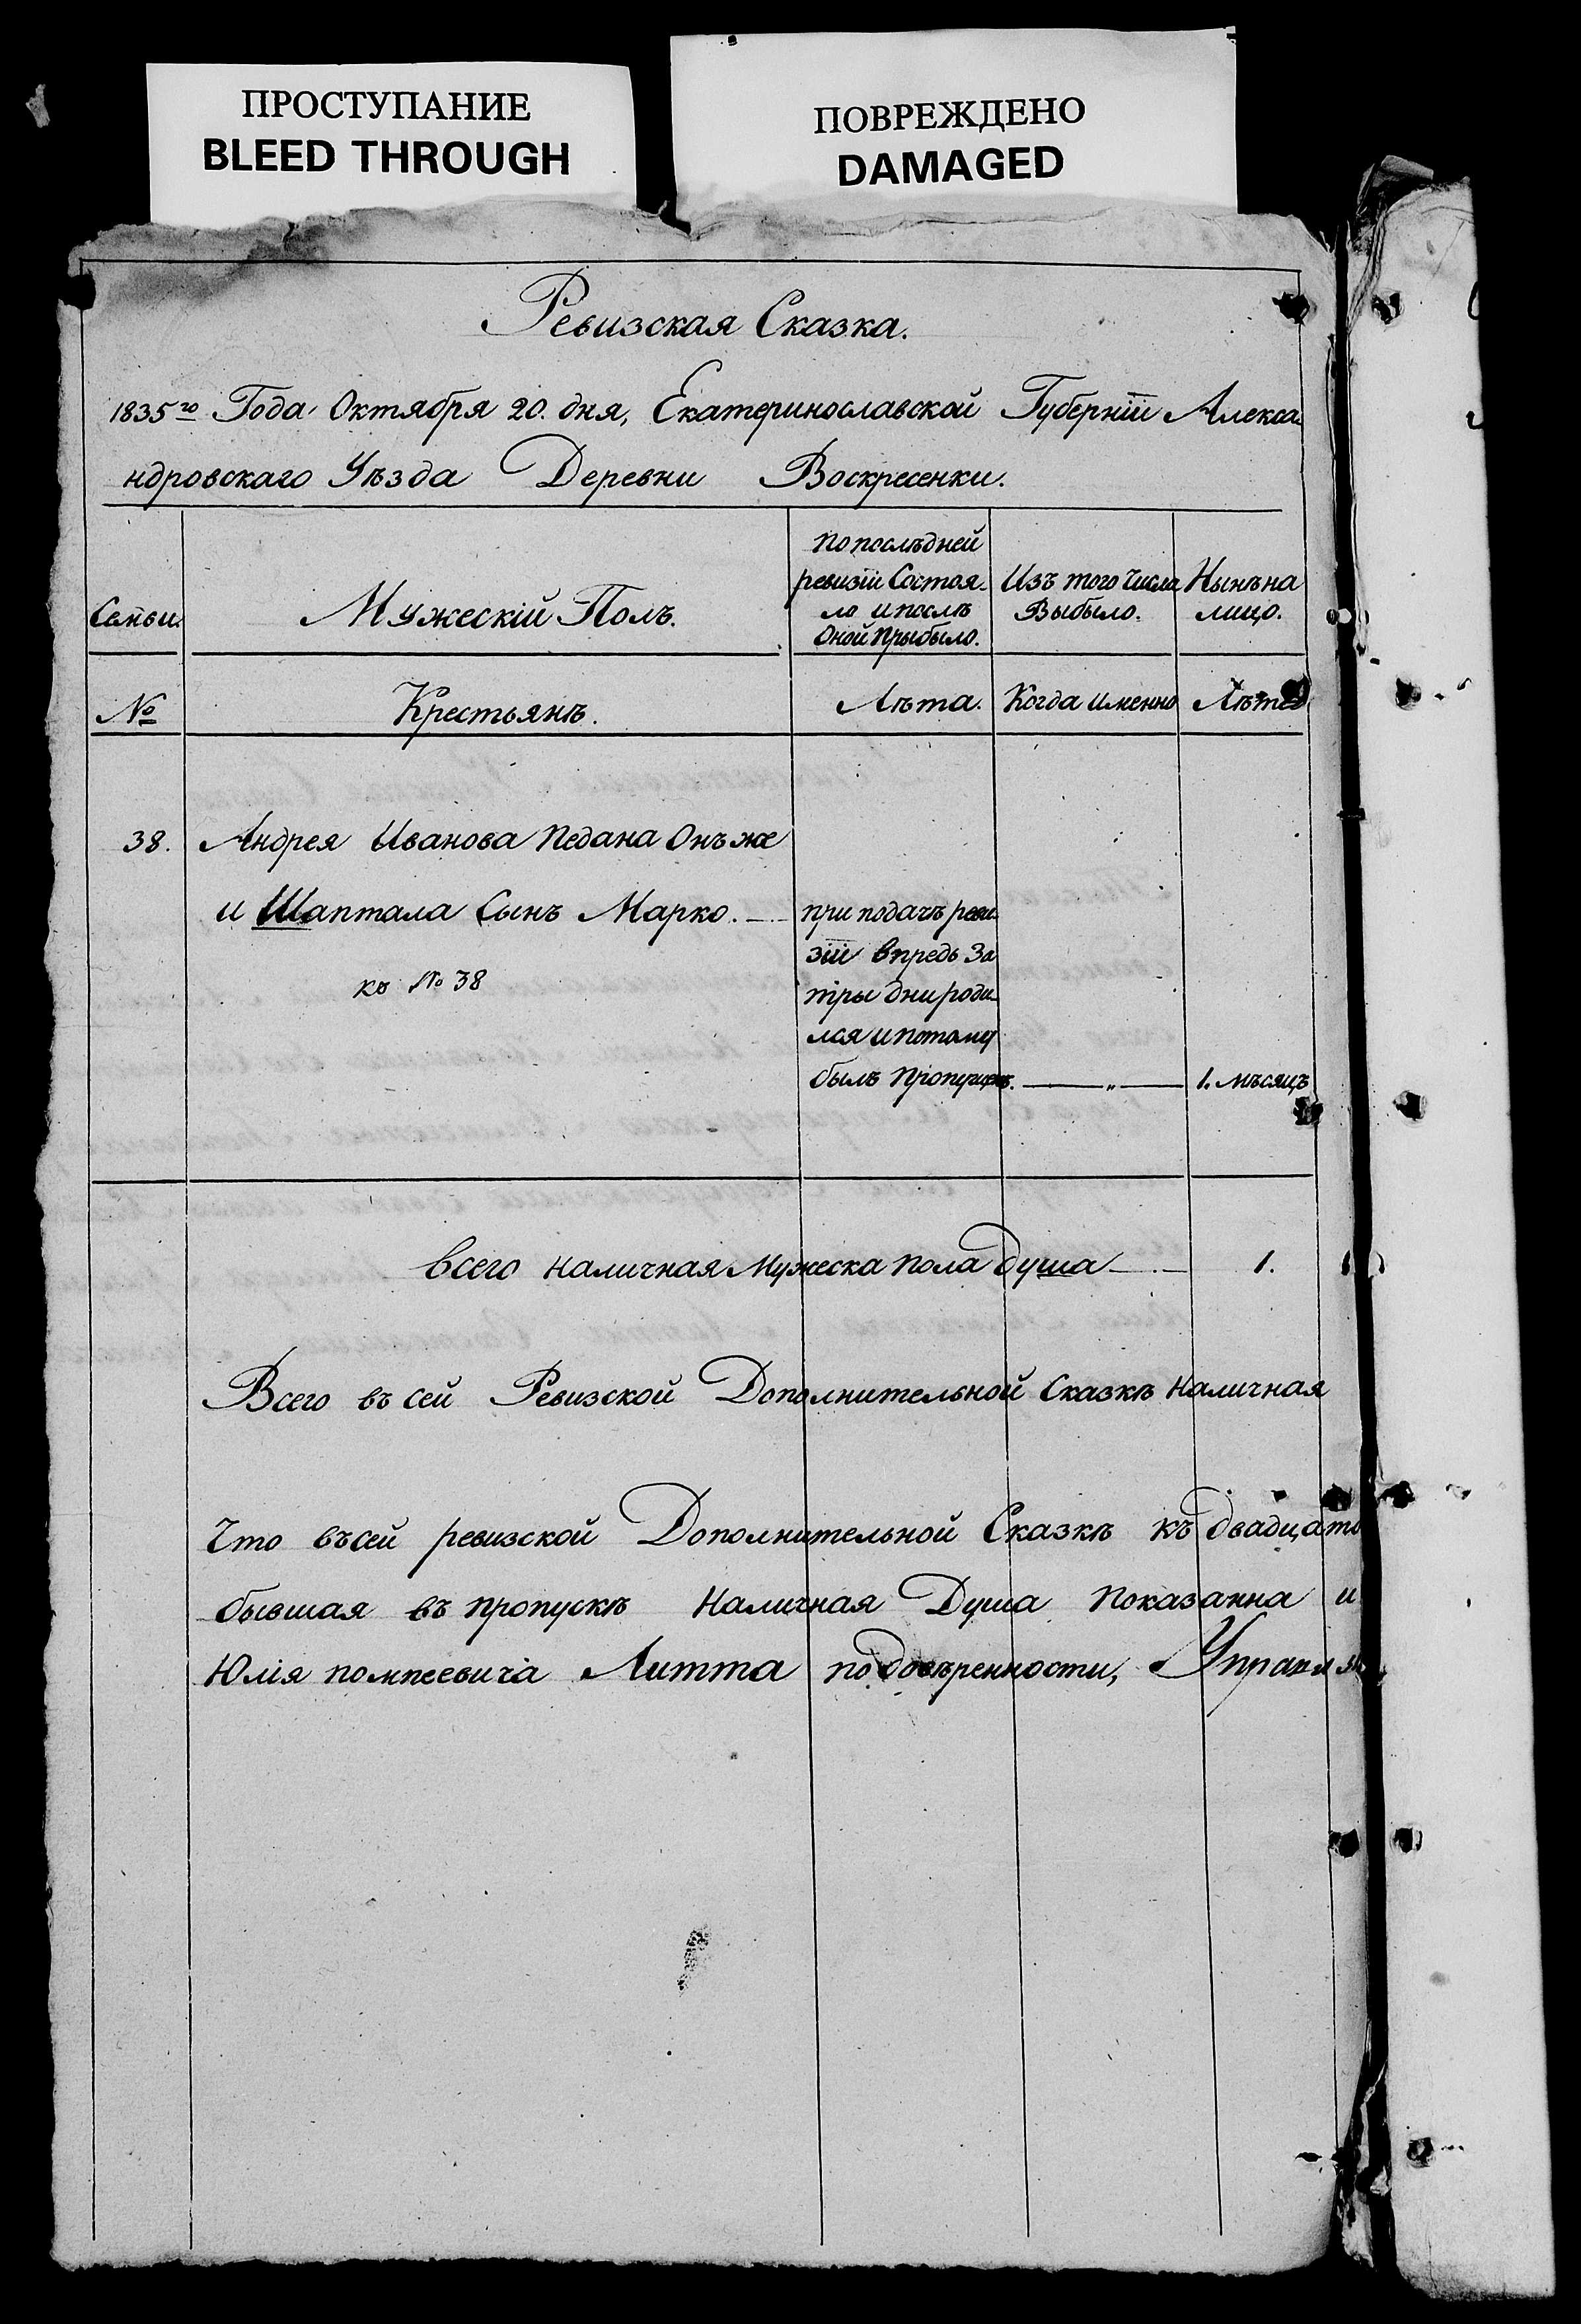 ПРОСТУПАНИЕ
BLEED THROUGH
ПОВРЕЖДЕНО
DAMAGED
Ревизская Сказка.
1835го Года Октября 20. дня, Екатеринославской Губернiи Алекса
ндровскаго Уѣзда Деревни Воскресенки.
Семьи
Мужескiй Полъ.
По послѣдней
ревизiи Состоя-
ло и послѣ
Оной Прыбыло.
Изъ того Числа
Выбыло.
Нынѣ на
лицо.
№
Крестьянъ.
Лѣта.
Когда именно
Лѣта
38.
Андрея Иванова Педана Онъ же
и Шаптала Сынъ Марко.
къ № 38
при подачѣ реви
зiи впредь За
тры дни роди-
лся и потому
былъ Пропущенъ. — „ — 1. мѣсяцъ
Всего наличная Мужеска пола душа — 1.
Всего въ сей Ревизской Дополнительной Сказкѣ наличная
Что въ сей ревизской Дополнительной Сказкѣ къ двадцато
бывшая въ пропускѣ Наличная Душа показанна и
Юлiя помпеевича Литта по довѣренности, Управля